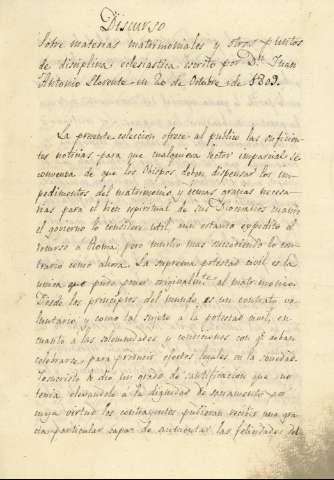 Discurso
Sobre materias matrimoniales y otros puntos
de disciplina eclesiastica escrito por Dn. Juan
Antonio Llorente en 20 de Octubre de 1809.
La presente coleccion ofrece al publico las suficien-
tes noticias para que cualquiera lector imparcial se
convenza de que los Obispos deben dispensar los im-
pedimentos del matrimonio y demas gracias necesa-
rias para el bien espiritual de sus Diocesanos cuando
el gobierno lo considere util, aun estando expedito el
recurso a Roma, pero mucho mas sucediendo lo con-
trario como ahora. La suprema potestad civil es la
unica que pudo poner originalmte. al matrimonio.
Desde los principios del mundo es un contrato vo-
luntario, y como tal sujeto a la potestad civil, en
cuanto a las solemnidades y condiciones con q.
celebrarse para producir efectos legales en la sociedad.
Jesucristo le dio un grado de santificacion que no
tenia elevandole a la dignidad de sacramento por
cuya virtud los contrayentes pudieran recibir una gra-
cia particular capaz de aumentar las felicidades del